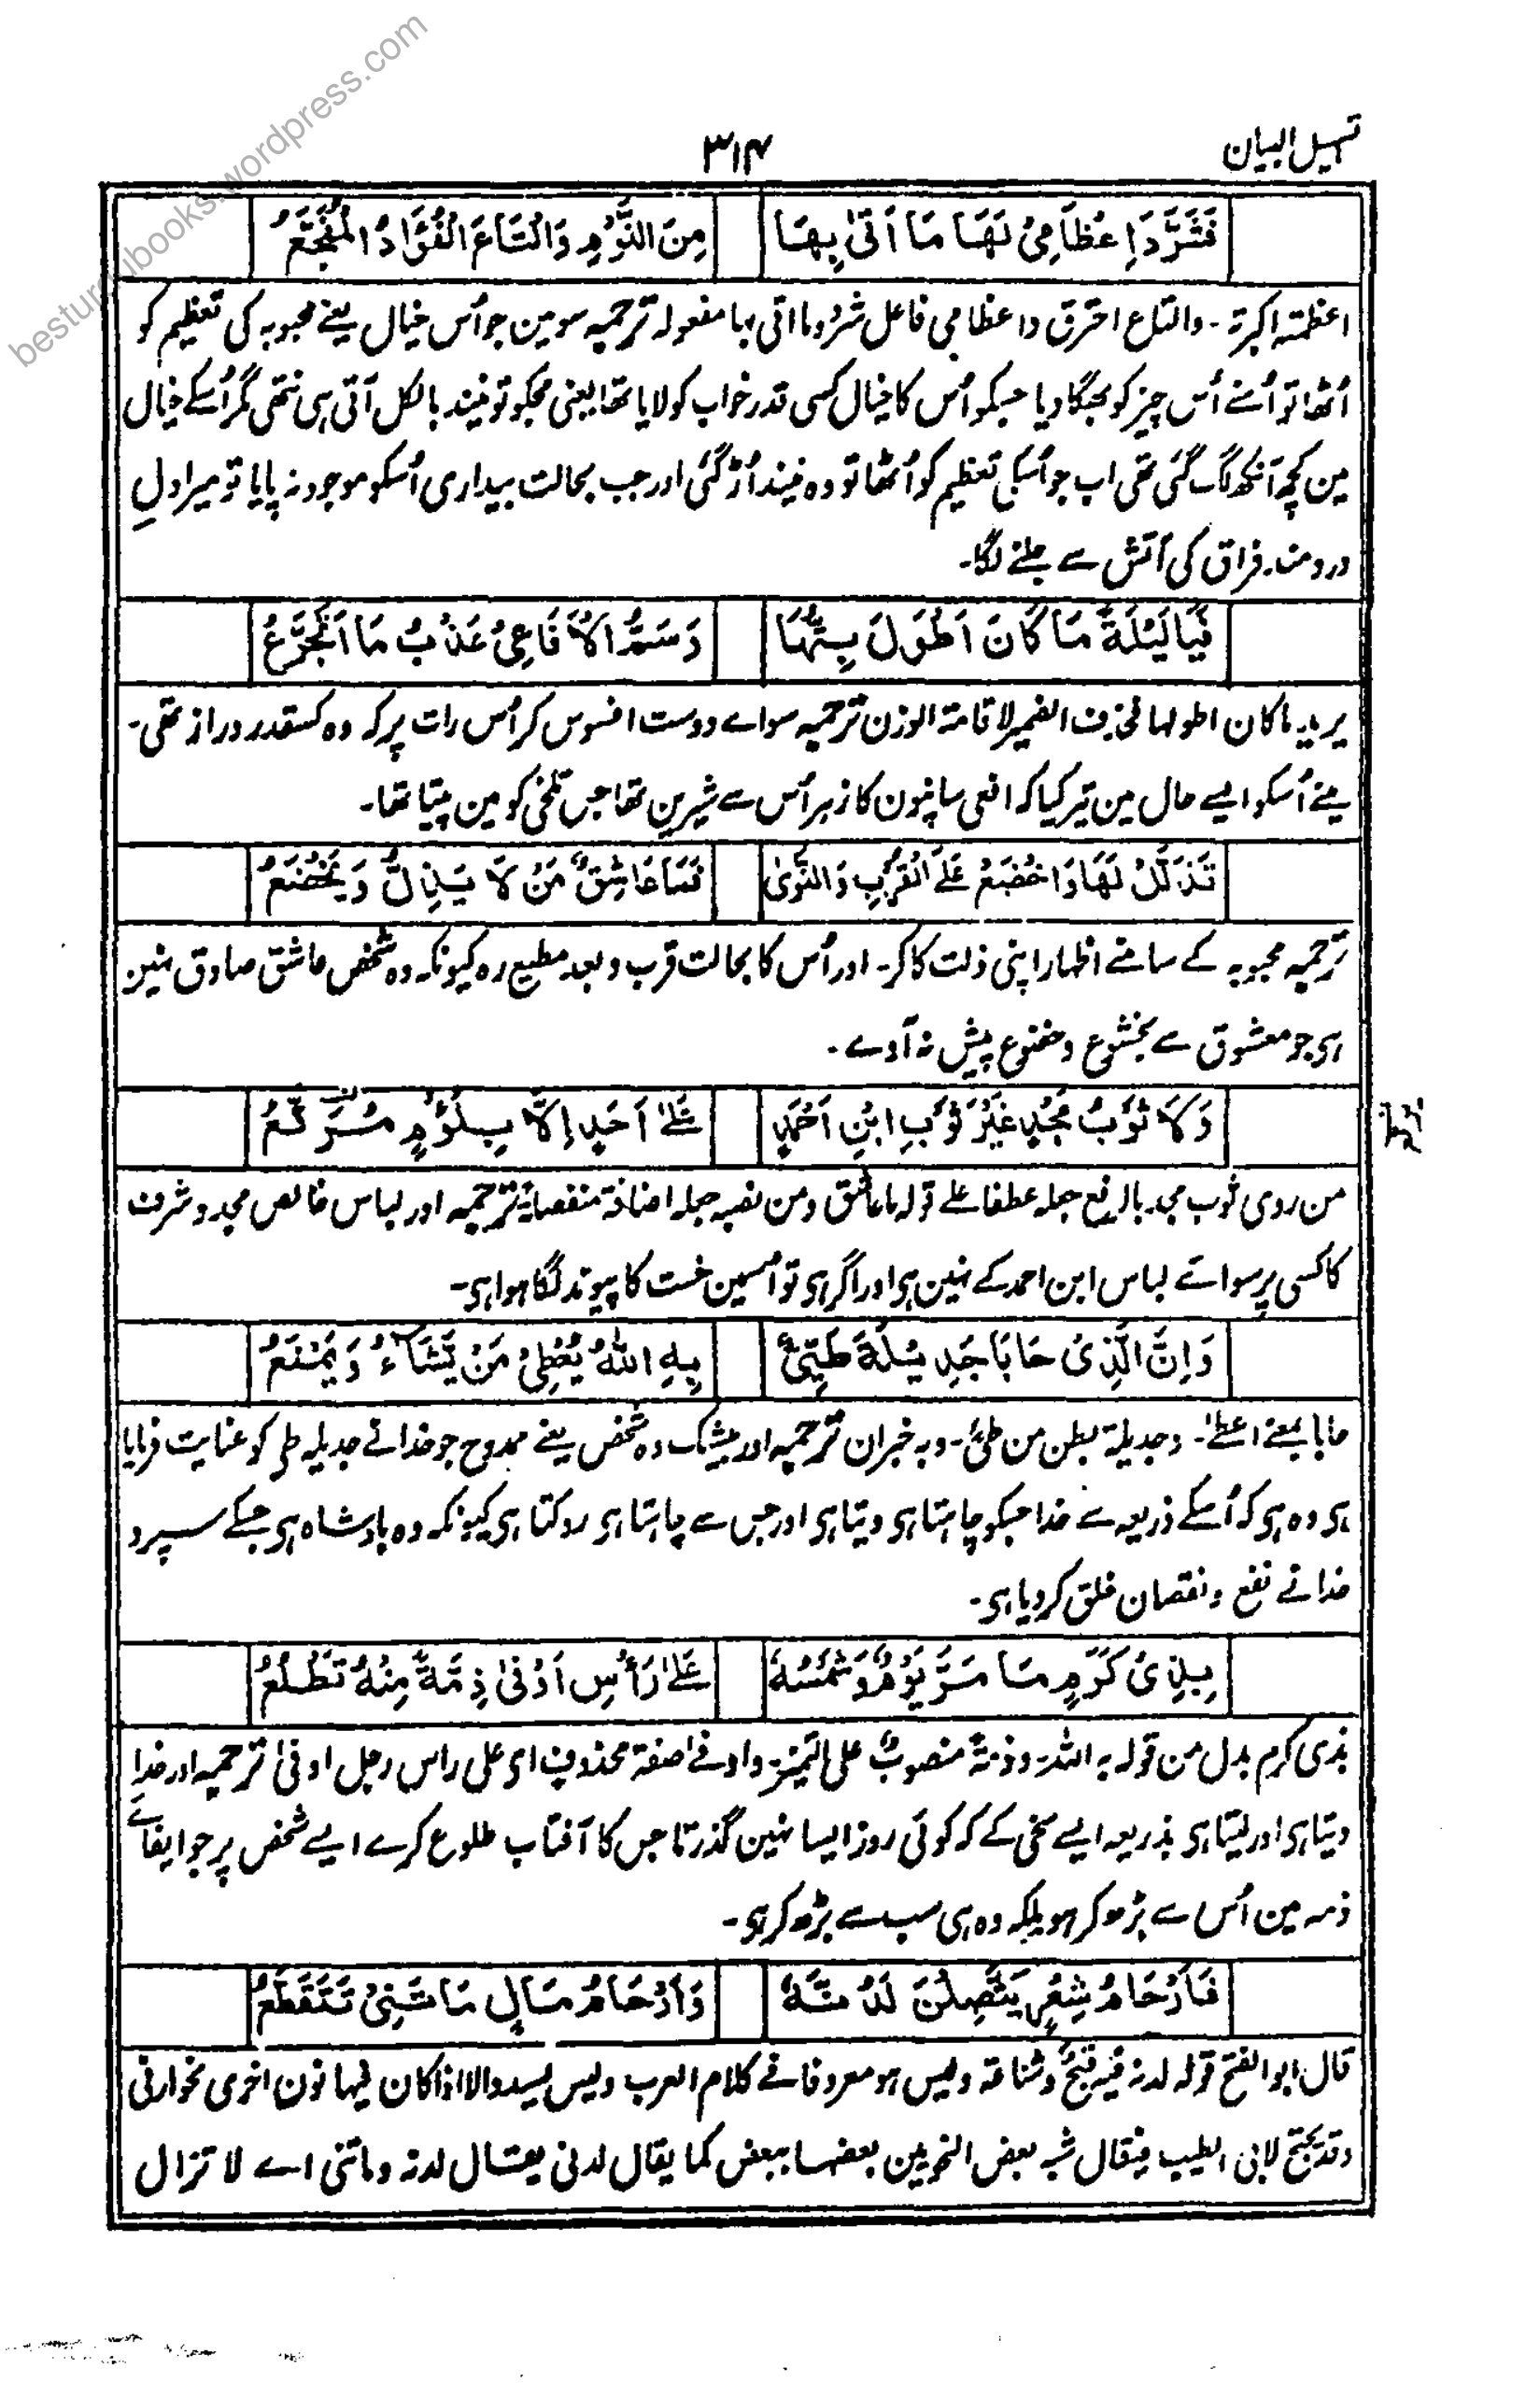 besturdubooks.wordpress.com
تسہیل البیان
۳۱۴
فَشَرَّدَ اِعْظَامِیْ لَهَا مَا اَتیٰ بِهَا
مِنَ النَّوْمِ وَالْتَاعَ الْفُؤَادُ الْمُفَجَّعُ
اعظمتہ اکبرتہ ۔ والتاع احترق واعظامی فاعل شرد وما اتی بہا مفعولہ ترجمہ سو مین جو اُس خیال یعنے محبوبہ کی تعظیم کو
اُٹھا تو اُسنے اُس چیز کو بھگا دیا جسکو اُس کا خیال کسی قدر خواب کو لایا تھا یعنی مجکو تو نیند بالکل آتی ہی نتھی مگر اُسکے خیال
مین کچھ آنکھ لگ گئی تھی اب جو اُسکی تعظیم کو اُٹھا تو وہ نیند اُڑ گئی اور جب بحالت بیداری اُسکو موجود نہ پایا تو میرا دلِ
دردمند فراق کی آتش سے جلنے لگا۔
فَیَا لَیْلَةً مَا كَانَ اَطْوَلَ بِتُّهَا
وَسَمُّ الْاَفَاعِیْ عَذْبُ مَا اَتَجَرَّعُ
یرید ماکان اطولہا فحذف الضمیر لاقامة الوزن ترجمہ سو اے دوست افسوس کر اُس رات پر کہ وہ کسقدر دراز تھی۔
مینے اُسکو ایسے حال مین تیر کیا کہ افعی سانپون کا زہر اُس سے شیرین تھا جس تلخی کو مین پیتا تھا۔
تَذَلَّلْ لَهَا وَاخْضَعْ عَلَی الْقُرْبِ وَالنَّوٰی
فَمَا عَاشِقٌ مَنْ لَا یَذِلُّ وَیَخْضَعُ
ترجمہ محبوبہ کے سامنے اظہار اپنی ذلت کا کر۔ اور اُس کا بحالت قرب و بعد مطیع رہ کیونکہ وہ شخص عاشق صادق نہین
ہی جو معشوق سے بخشوع و خضوع پیش نہ آوے ۔
وَلَا ثَوْبُ مَجْدٍ غَیْرَ ثَوْبِ ابْنِ اَحْمَدٍ
عَلٰی اَحَدٍ اِلَّا بِلُؤْمٍ مُرَقَّعُ
من روی ثوب مجد بالرفع جعلہ عطفا علے قولہ ما عاشق ومن نصبہ جعلہ اضافة منفصلة ترجمہ اور لباس خالص مجد و شرف
کا کسی پر سوائے لباس ابن احمد کے نہین ہی اور اگر ہی تو اُسمین خست کا پیوند لگا ہوا ہی۔
وَاِنَّ الَّذِیْ حَابَا جَدِیْلَةَ طَیِّئٍ
بِهِ اللّٰهُ یُعْطِیْ مَنْ یَّشَآءُ وَیَمْنَعُ
حابا بمعنے اعطےٰ ۔ وجدیلة بطن من طئ ۔ وبہ خبران ترجمہ اور بیشک وہ شخص یعنے ممدوح جو خدا نے جدیلہ طی کو عنایت فرمایا
ہی وہ ہی کہ اُسکے ذریعہ سے خدا جسکو چاہتا ہی دیتا ہی اور جس سے چاہتا ہی روکتا ہی کیونکہ وہ بادشاہ ہی جسکے سپرد
خدا نے نفع و نقصان خلق کر دیا ہی۔
بِذِیْ كَرَمٍ مَا مَرَّ یَوْمٌ وَشَمْسُهُ
عَلٰی رَأْسِ اَوْفٰی ذِمَّةً مِنْهُ تَطْلُعُ
بذی کرم بدل من قولہ بہ اللہ وذمةً منصوبٌ علی التمیز واوفے صفة محذوف ای علی راس رجل اوفیٰ ترجمہ اور خدا
دیتا ہی اور لیتا ہی بذریعہ ایسے سخی کے کہ کوئی روز ایسا نہین گذرتا جس کا آفتاب طلوع کرے ایسے شخص پر جو ایفاے
ذمہ مین اُس سے بڑھ کر ہو بلکہ وہ ہی سب سے بڑھ کر ہی۔
فَاَرْحَامُ شِعْرٍ یَتَّصِلْنَ لَدُنَّهٗ
وَاَرْحَامُ مَالٍ مَا تَنِیْ تَتَقَطَّعُ
قال ابو الفتح قولہ لدنہ فیہ قبحٌ وشناعة ولیس ہو معروفا فے کلام العرب ولیس یسدد الا اذا کان فیہا نون اخری نحو لدنی
وقد یحتج لابی الطیب فیقال شبہ بعض النحویین بعضہا ببعض کما یقال لدنی یقال لدنہ وماتنی اے لا تزال